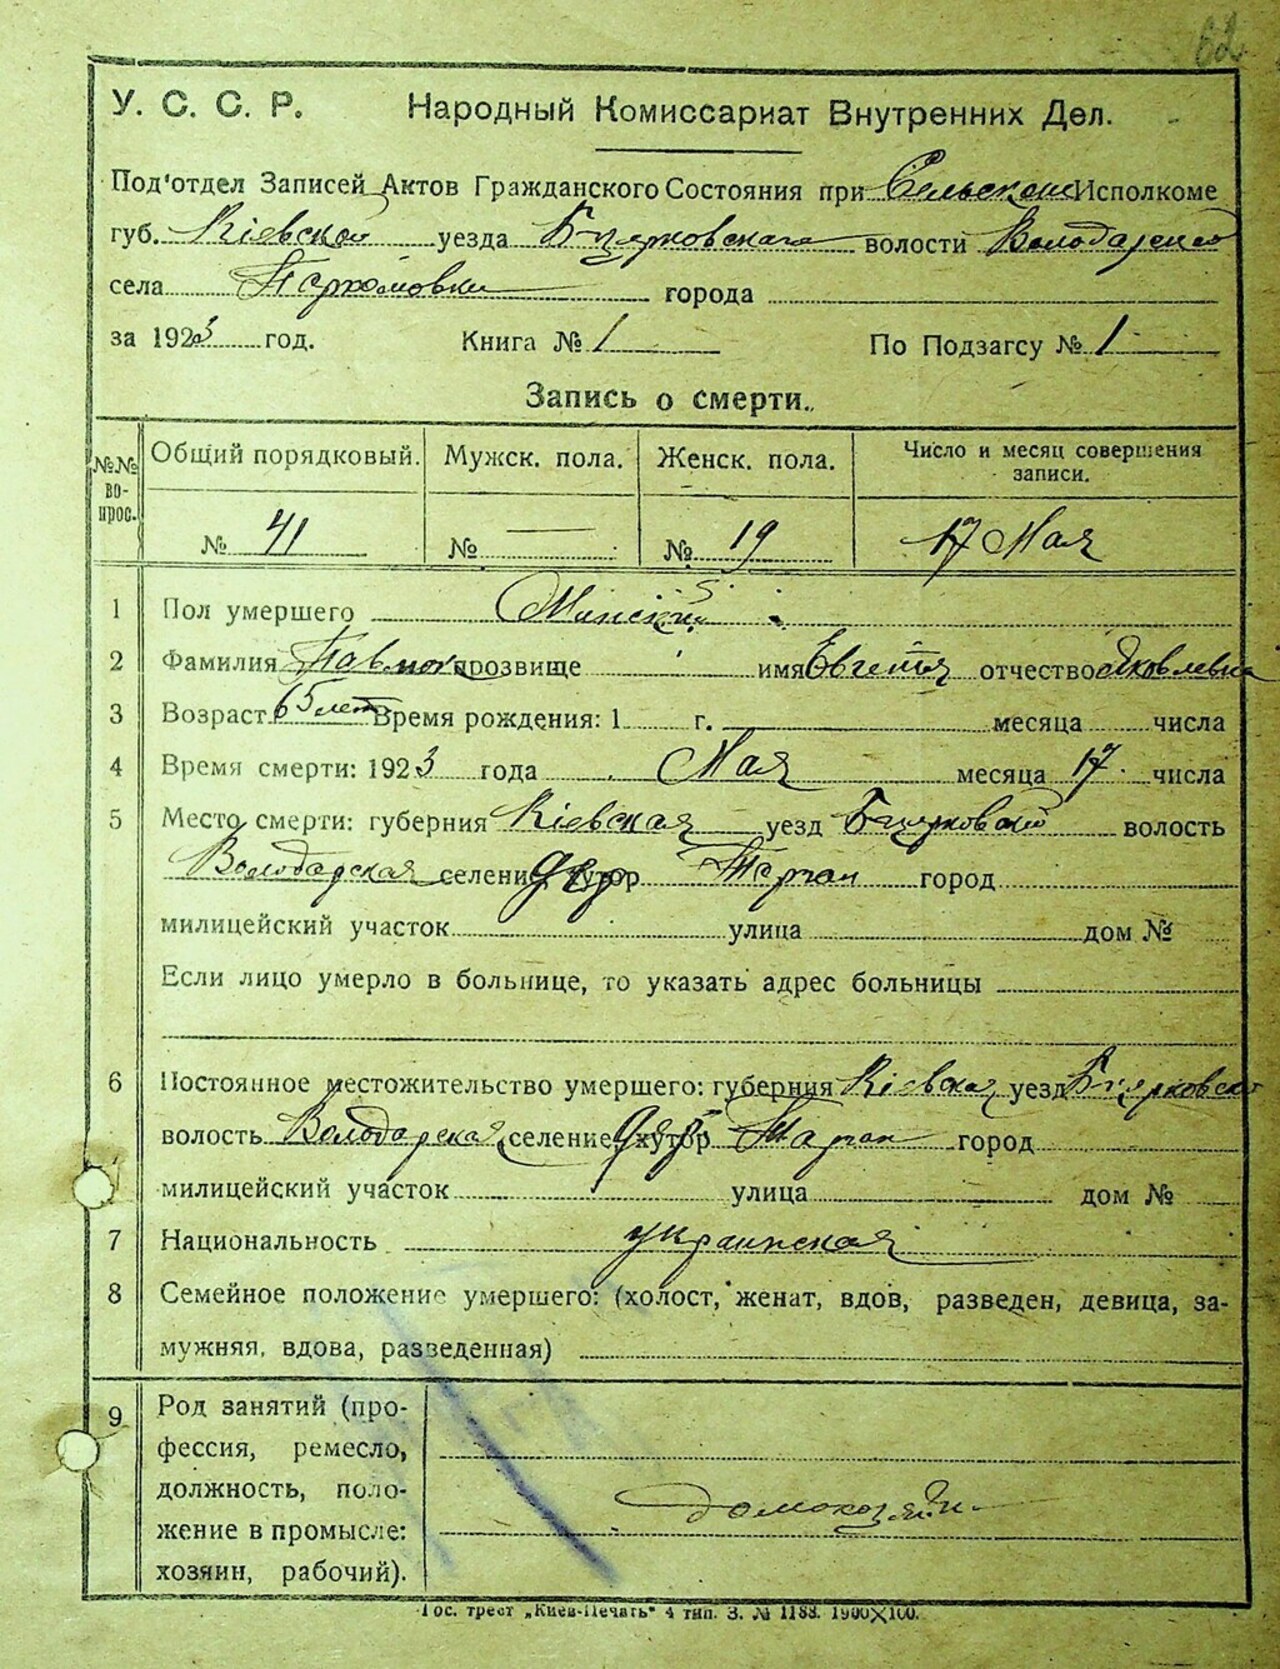 62
У. С. С. Р. Народный Комиссариат Внутренних Дел.
Под'отдел Записей Актов Гражданского Состояния при Сельском Исполкоме
губ. Кіевской уезда Бцерковского волости Володарской
села Пархомовки города
за 1923 год. Книга № 1 По Подзагсу № 1
Запись о смерти.
№№ вопрос. Общий порядковый. Мужск. пола. Женск. пола. Число и месяц совершения записи.
№ 41 № — № 19 17 Мая
1 Пол умершего
2 Фамилия прозвище имя Евгения отчество Яковлевна
3 Возраст 65 лет Время рождения: 1 г. месяца числа
4 Время смерти: 1923 года Мая месяца 17 числа
5 Место смерти: губерния Кіевская уезд Бцерковский волость
Володарская селение, хутор дер Тарган город
милицейский участок улица дом №
Если лицо умерло в больнице, то указать адрес больницы
6 Постоянное местожительство умершего: губерния Кіевская уезд Бцерковский
волость Володарская селение, хутор дер Тарган город
милицейский участок улица дом №
7 Национальность украинская
8 Семейное положение умершего: (холост, женат, вдов, разведен, девица, за-
мужняя, вдова, разведенная)
9 Род занятий (про-
фессия, ремесло,
должность, поло-
жение в промысле:
хозяин, рабочий).
Гос. трест „Киев-Печать" 4 тип. З. № 1188. 1900X100.